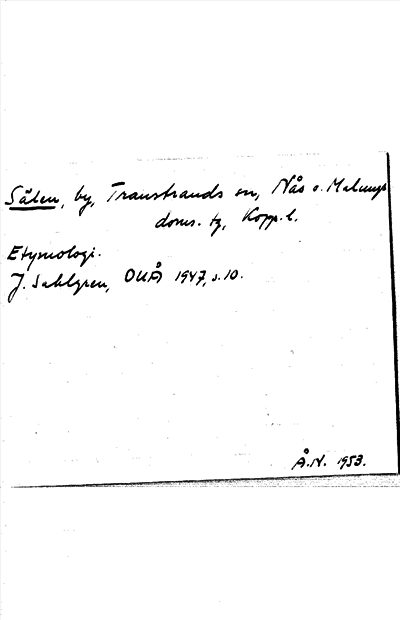 Sälen, by, Transtrands sn, Nås o. Malungs
doms. tg, Kopp. l.
Etymologi.
J. Sahlgren, OUÅ 1947, s. 10.
Å.N. 1953.